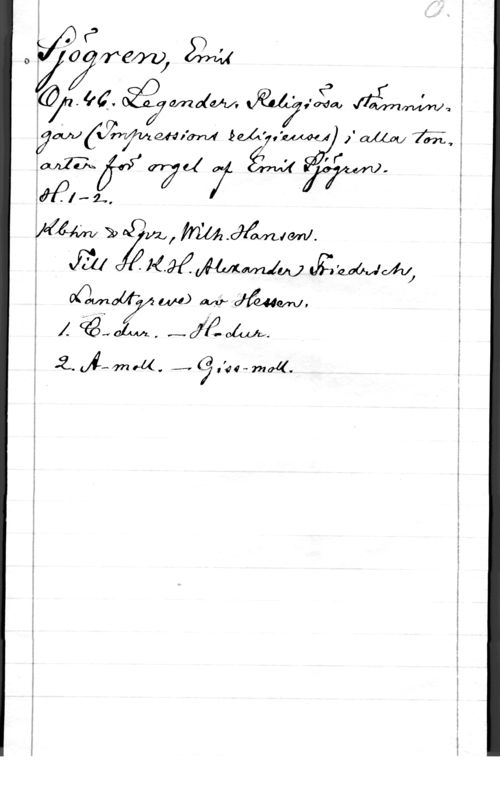 O.
Sjögren, Emil
Op. 46. Legender. Religiösa stämnin-
gar (Impressions religieuses) i alla ton-
arter för orgel af Emil Sjögren.
H. 1-2.
Kbhn & Lpz, Wilh. Hansen.
Till H. K. H. Alexander Friedrich,
Landtgreve av Hessen.
1. C-dur. - H-dur.
2. A-moll. - Giss-moll.